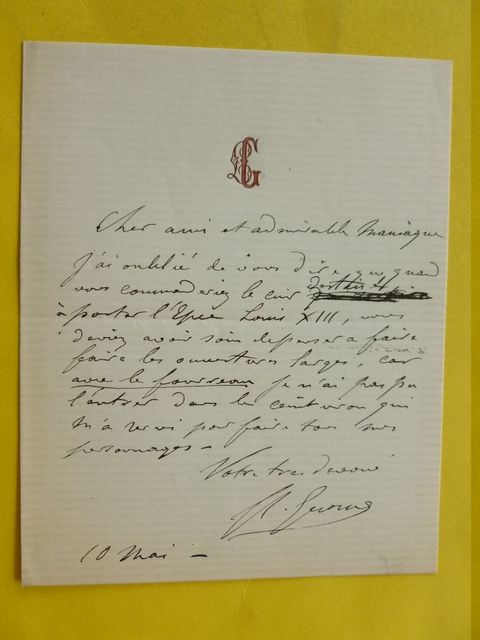 G
Cher ami et admirable Maniaque
J'ai oublié de vous dire que quand
vous commanderiez le cuir destiné
à porter l'Epée Louis XIII, vous
deviez avoir soin de penser à faire
faire les ouvertures larges, car
avec le fourreau je n'ai pas pu
l'entrer dans le ceinturon qui
m'a servi pour faire tous mes
personnages -
Votre tres devoué
10 Mai -